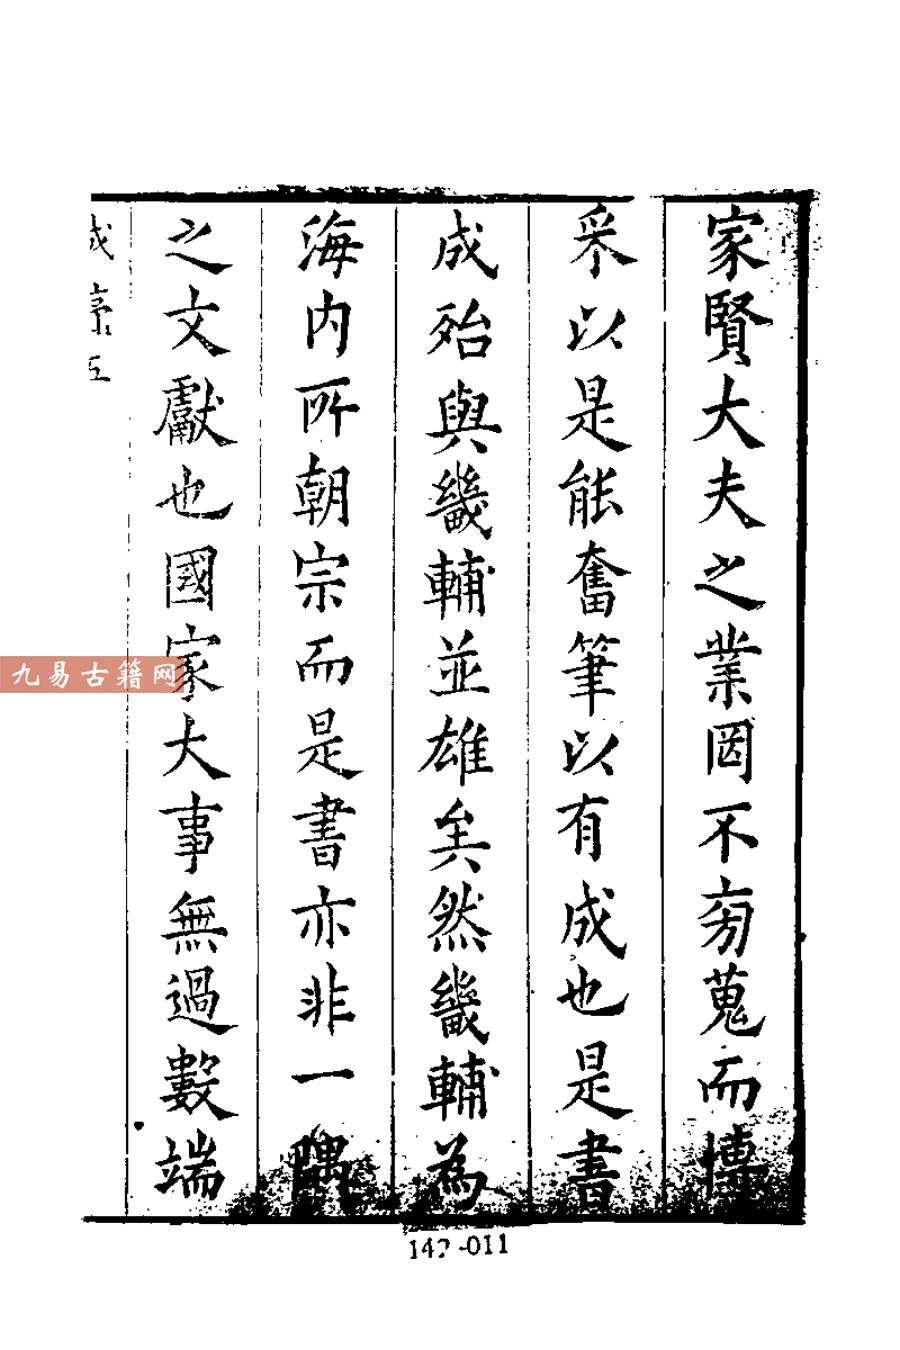 家賢大夫之業罔不旁蒐而博
采以是能奮筆以有成也是書
成殆與畿輔並雄矣然畿輔為
海内所朝宗而是書亦非一隅
之文獻也國家大事無過數端
序五
九易古籍网
142-011